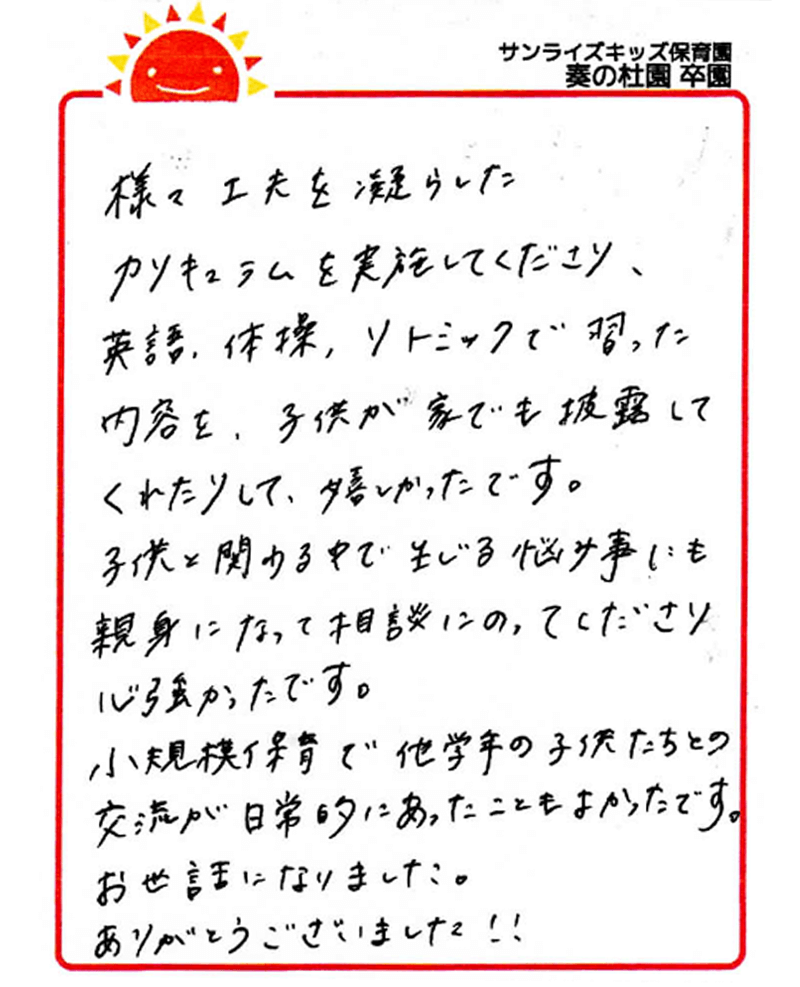 サンライズキッズ保育園
奏の杜園 卒園
様々 工夫を凝らした
カリキュラムを実施してくださり、
英語、体操、リトミックで習った
内容を、子供が家でも披露して
くれたりして、嬉しかったです。
子供と関わる中で生じる悩み事にも
親身になって相談にのってくださり
心強かったです。
小規模保育で他学年の子供たちとの
交流が日常的にあったこともよかったです。
お世話になりました。
ありがとうございました!!